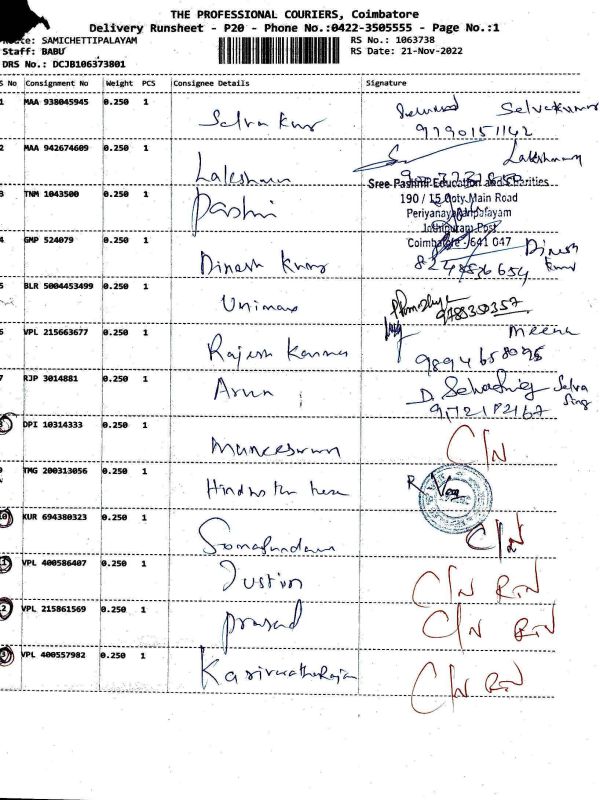 THE PROFESSIONAL COURIERS, Coimbatore
Delivery Runsheet - P20 - Phone No.:0422-3505555 - Page No.:1
Route: SAMICHETTIPALAYAM RS No.: 1063738
Staff: BABU RS Date: 21-Nov-2022
DRS No.: DCJB106373801
S No Consignment No Weight PCS Consignee Details Signature
1 MAA 938045945 0.250 1 Selva Selvakumar
9790151142
2 MAA 942674609 0.250 1 Lakshman
3 TNM 1043500 0.250 1 Pashmi
Sree Pashmi Education and Charities
190 / 15 Ooty Main Road
Periyanayakanpalayam
Jothipuram Post
Coimbatore - 641 047
4 GMP 524079 0.250 1 Dinesh Kumar Dinesh Kumar
5 BLR 5004453499 0.250 1 Unimax
9789350357
6 VPL 215663677 0.250 1 Rajesh Kanna Meena
9894658095
7 RJP 3014881 0.250 1 Arun D. Selva Sing
8 DPI 10314333 0.250 1 Muneeswaran C/N
9 TMG 200313056 0.250 1 Hindustan R
10 KUR 694380323 0.250 1 Somasundaram C/N
11 VPL 400586407 0.250 1 Justin C/N RTN
12 VPL 215861569 0.250 1 Prasad C/N RTN
13 VPL 400557982 0.250 1 C/N RTN